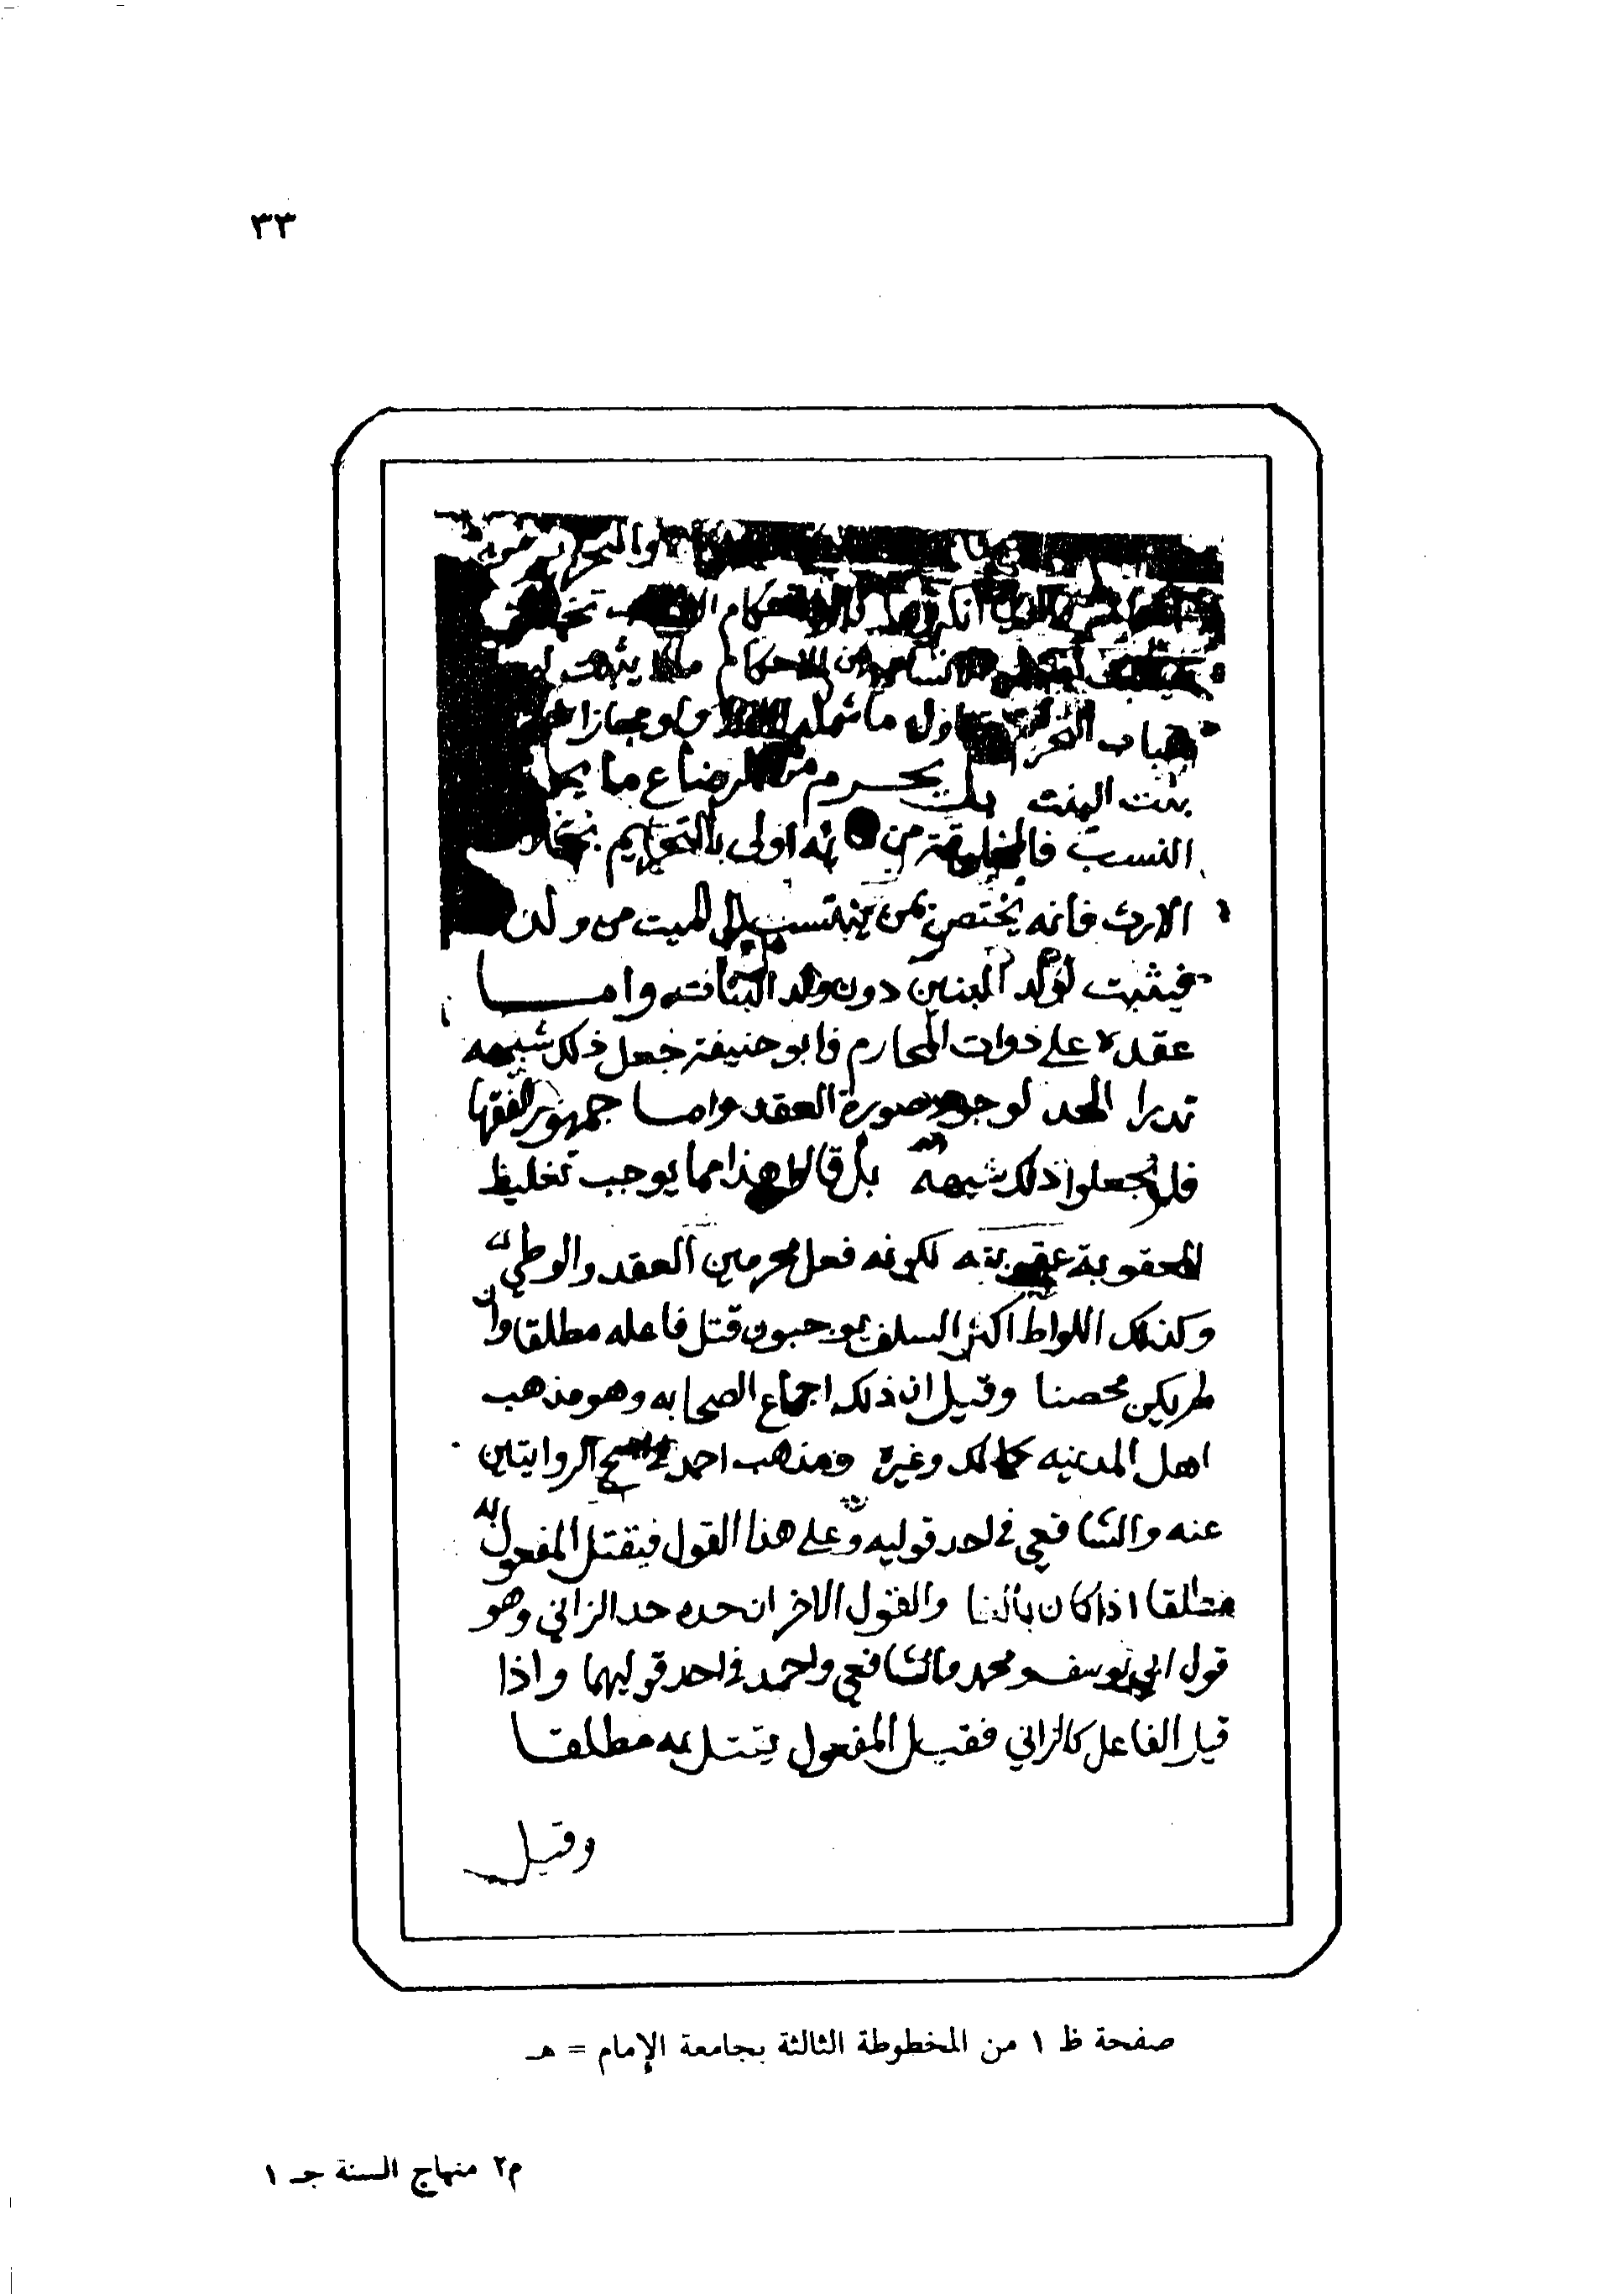 ٣٣
والتحريم
انكروا الاحكام الانساب تختلف
الانساب من الاحكام مالا يثبت
فباب التحريم يتناول ما شمله ولو مجازا
بنت البنت بل يحرم من الرضاع ما يحرم
النسب فالمخلوقة من مائه اولى بالتحريم بخلاف
الارث فانه يختص بمن ينتسب الى الميت من ولد
فيثبت لولد البنين دون ولد البنات واما
عقده على ذوات المحارم فابو حنيفة جعل ذلك شبهه
تدرا الحد لوجود صورة العقد واما جمهور الفقها
فلم يجعلوا ذلك شبهة بل قالوا هذا مما يوجب تغليظ
العقوبة عقوبته لكونه فعل محرمين العقد والوطي
وكذلك اللواط اكثر السلف يوجبون قتل فاعله مطلقا وان
لم يكن محصنا وقيل ان ذلك اجماع الصحابه وهو مذهب
اهل المدينه كمالك وغيره ومذهب احمد في اصح الروايتين
عنه والشافعي في احد قوليه وعلى هذا القول فيقتل المفعول به
مطلقا اذا كان بالغا والقول الاخر ان حده حد الزاني وهو
قول ابي يوسف ومحمد والشافعي واحمد في احد قوليهما واذا
قيل الفاعل كالزاني فقيل المفعول يقتل به مطلقا
وقيل
صفحة ظ ١ من المخطوطة الثالثة بجامعة الإمام = هـ
م٢ منهاج السنة جـ ١